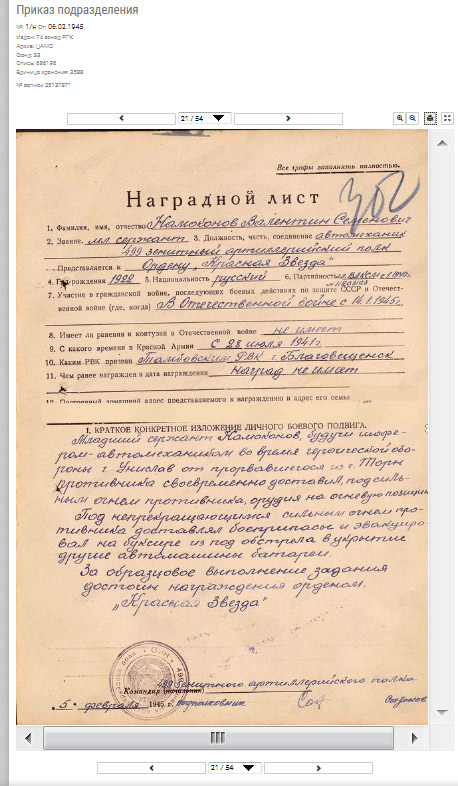 Приказ подразделения
№: 1/н От: 06.02.1945
Издан: 74 зенад РГК
Архив: ЦАМО
Фонд: 33
Опись: 686196
Единица хранения: 3588
№ записи 25137971
21 / 54
Все графы заполнять полностью.
Наградной лист
1. Фамилия, имя, отчество Камоконов Валентин Семенович
2. Звание мл. сержант 3. Должность, часть, соединение автомеханик
499 зенитный артиллерийский полк
Представляется к Ордену „Красная Звезда"
4. Год рождения 1922 5. Национальность русский 6. Партийность
7. Участие в гражданской войне, последующих боевых действиях по защите СССР и Отечест-
венной войне (где, когда) В Отечественной войне с 14.1.1945г.
8. Имеет ли ранения и контузии в Отечественной войне не имеет
9. С какого времени в Красной Армии С 28 июля 1941г.
10. Каким РВК призван Тамбовским РВК г. Благовещенск
11. Чем ранее награжден и дата награждения Наград не имеет
12. Постоянный домашний адрес представляемого к награждению и адрес его семьи
I. КРАТКОЕ КОНКРЕТНОЕ ИЗЛОЖЕНИЕ ЛИЧНОГО БОЕВОГО ПОДВИГА.
Младший сержант Камоконов, будучи шофе-
ром-автомехаником во время героической обо-
роны г. Унислав от прорвавшегося из г. Торн
противника своевременно доставил, под силь-
ным огнем противника, орудия на огневую позицию
Под непрекращающимся сильным огнем про-
тивника доставлял боеприпасы и эвакуиро-
вал на буксире из под обстрела в укрытие
другие автомашины батареи.
За образцовое выполнение задания
достоин награждения орденом
„Красная Звезда"
499 зенитного артиллерийского полка
Командир (начальник)
„5" февраля 1945 г. подполковник Сазонов
21 / 54